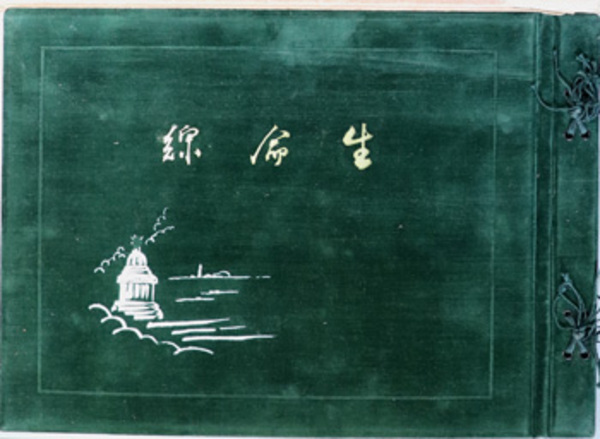 生命線